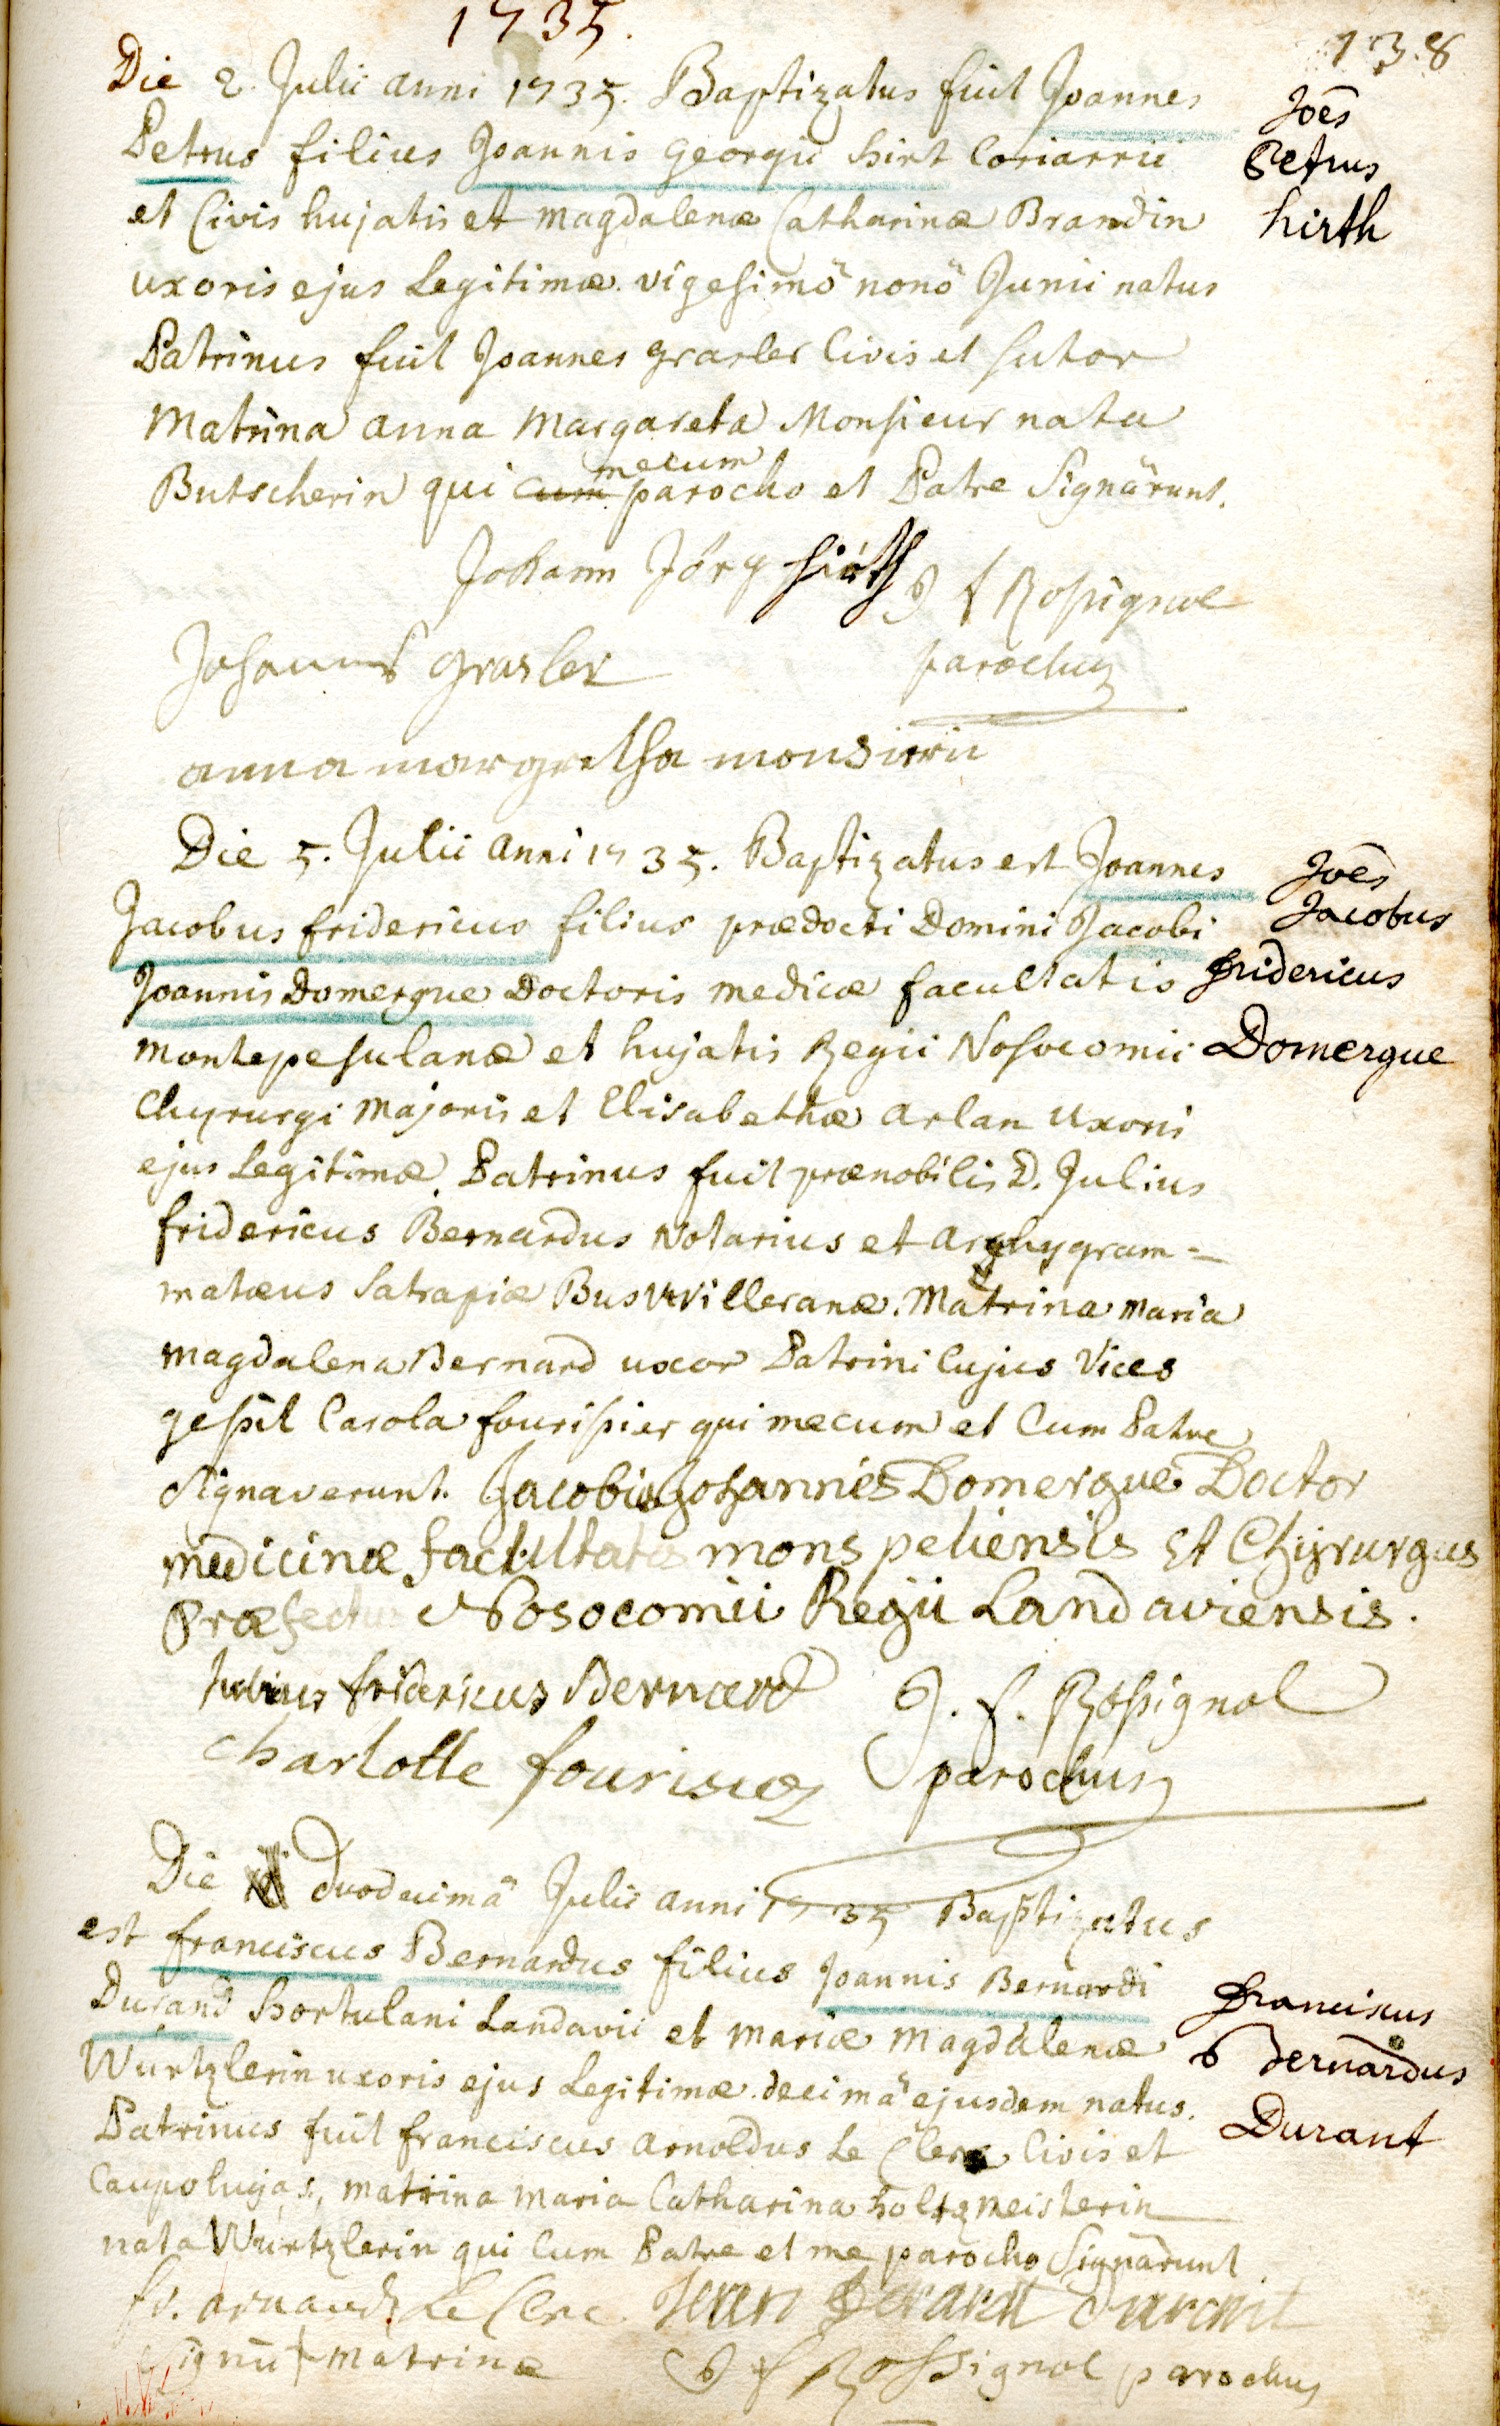 1735.
138
Die 2. Julii anni 1735. Baptizatus fuit Joannes
Petrus filius Joannis Georgii hirt Coriarii
et Civis hujatis et Magdalenæ Catharinæ Brandin
uxoris ejus Legitimæ. vigesimô nonô Junii natus
Patrinus fuit Joannes grasler Civis et sutor
Matrina anna Margareta Monsieur nata
Butscherin qui cum mecum parocho et Patre Signârunt.
Joēs
Petrus
hirth
Johann Jörg hirth
J f Rossignol
parochus
Johannes grasler
anna margretha monsirin
Die 5. Julii anni 1735. Baptizatus est Joannes
Jacobus fridericus filius prædocti Domini Jacobi
Joannis Domergue Doctoris medicæ facultatis
montepesulanæ et hujatis Regii Nosocomii
Chyrurgi Majoris et Elisabethæ arlan Uxoris
ejus Legitimæ. Patrinus fuit prænobilis D. Julius
fridericus Bernardus Notarius et archygram=
matæus Satrapiæ Busvvilleranæ. Matrina Maria
Magdalena Bernard uxor Patrini Cujus Vices
gessit Carola fourisier qui mecum et Cum Patre
Signaverunt. Jacobus Johannes Domergue Doctor
medicinæ facultatis monspeliensis Et Chyrurgus
Præfectus Nosocomii Regii Landaviensis.
Joēs
Jacobus
fridericus
Domergue
Julius fridericus Bernard
J. f. Rossignol
Charlotte fourisiez
parochus
Die duodecimâ Julii anni 1735 Baptizatus
est franciscus Bernardus filius Joannis Bernardi
Durand hortulani Landavii et Mariæ Magdalenæ
Wurtzlerin uxoris ejus Legitimæ. decimâ ejusdem natus.
Patrinus fuit franciscus arnoldus Le Clerc Civis et
Caupo hujas, matrina Maria Catharina holtzmeisterin
nata Wurtzlerin qui Cum Patre et me parocho Signârunt
franciscus
Bernardus
Durant
fr. arnaud Le Clerc Jean Durant
Signū + Matrinæ
J f Rossignol parochus